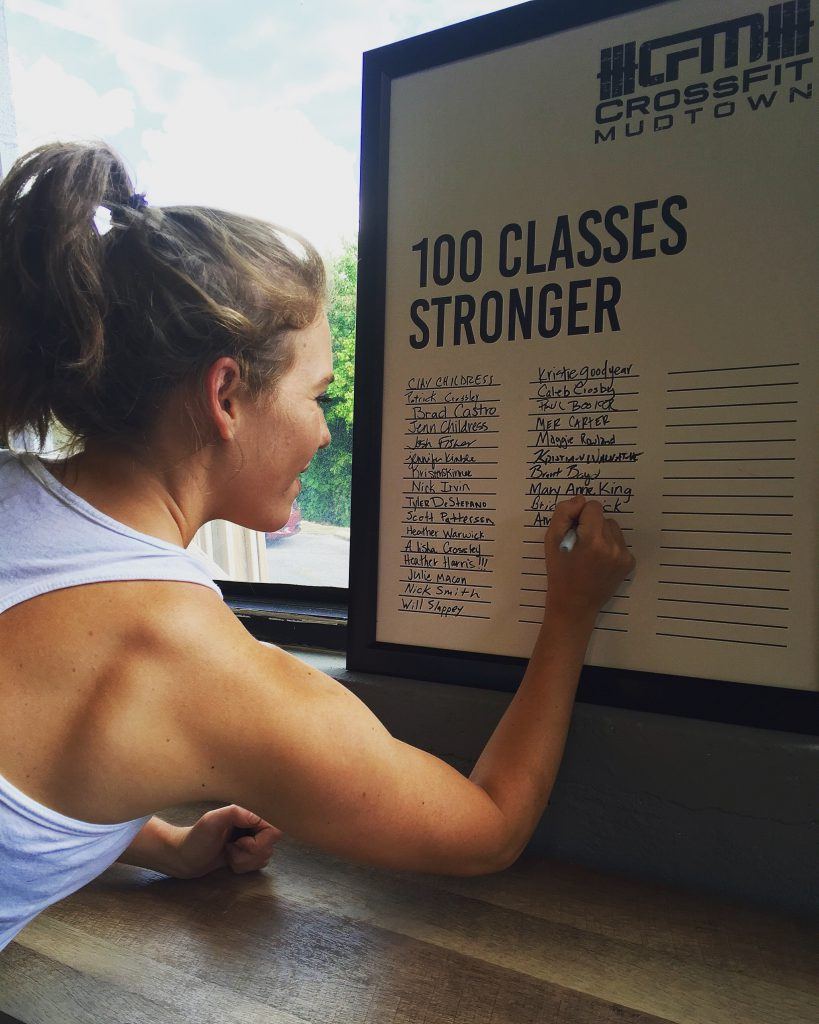 CFM
CROSSFIT
MUDTOWN
100 CLASSES
STRONGER
CLAY CHILDRESS
Patrick Crossley
Brad Castro
Jenn Childress
Josh Fisher
Jennifer
Nick Irvin
TYLER DeSTEFANO
Scott Patterson
Heather Warwick
Alisha Crossley
Heather Harris!!!
Julie Macon
Nick Smith
Will Slappey
Kristie Goodyear
Caleb Crosby
PAUL BOOKER
MER CARTER
Maggie Rowland
Brent
Mary Anne King